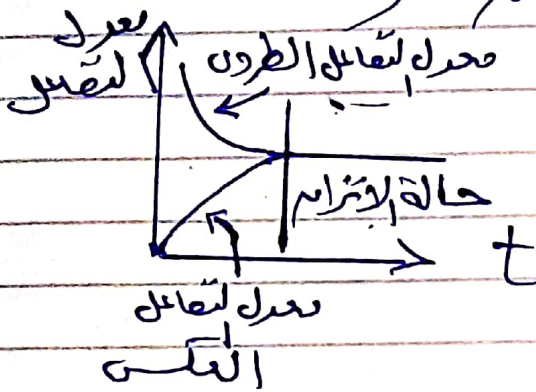 معدل
التفاعل
معدل التفاعل الطردى
حالة الاتزان
t
معدل التفاعل
العكسى